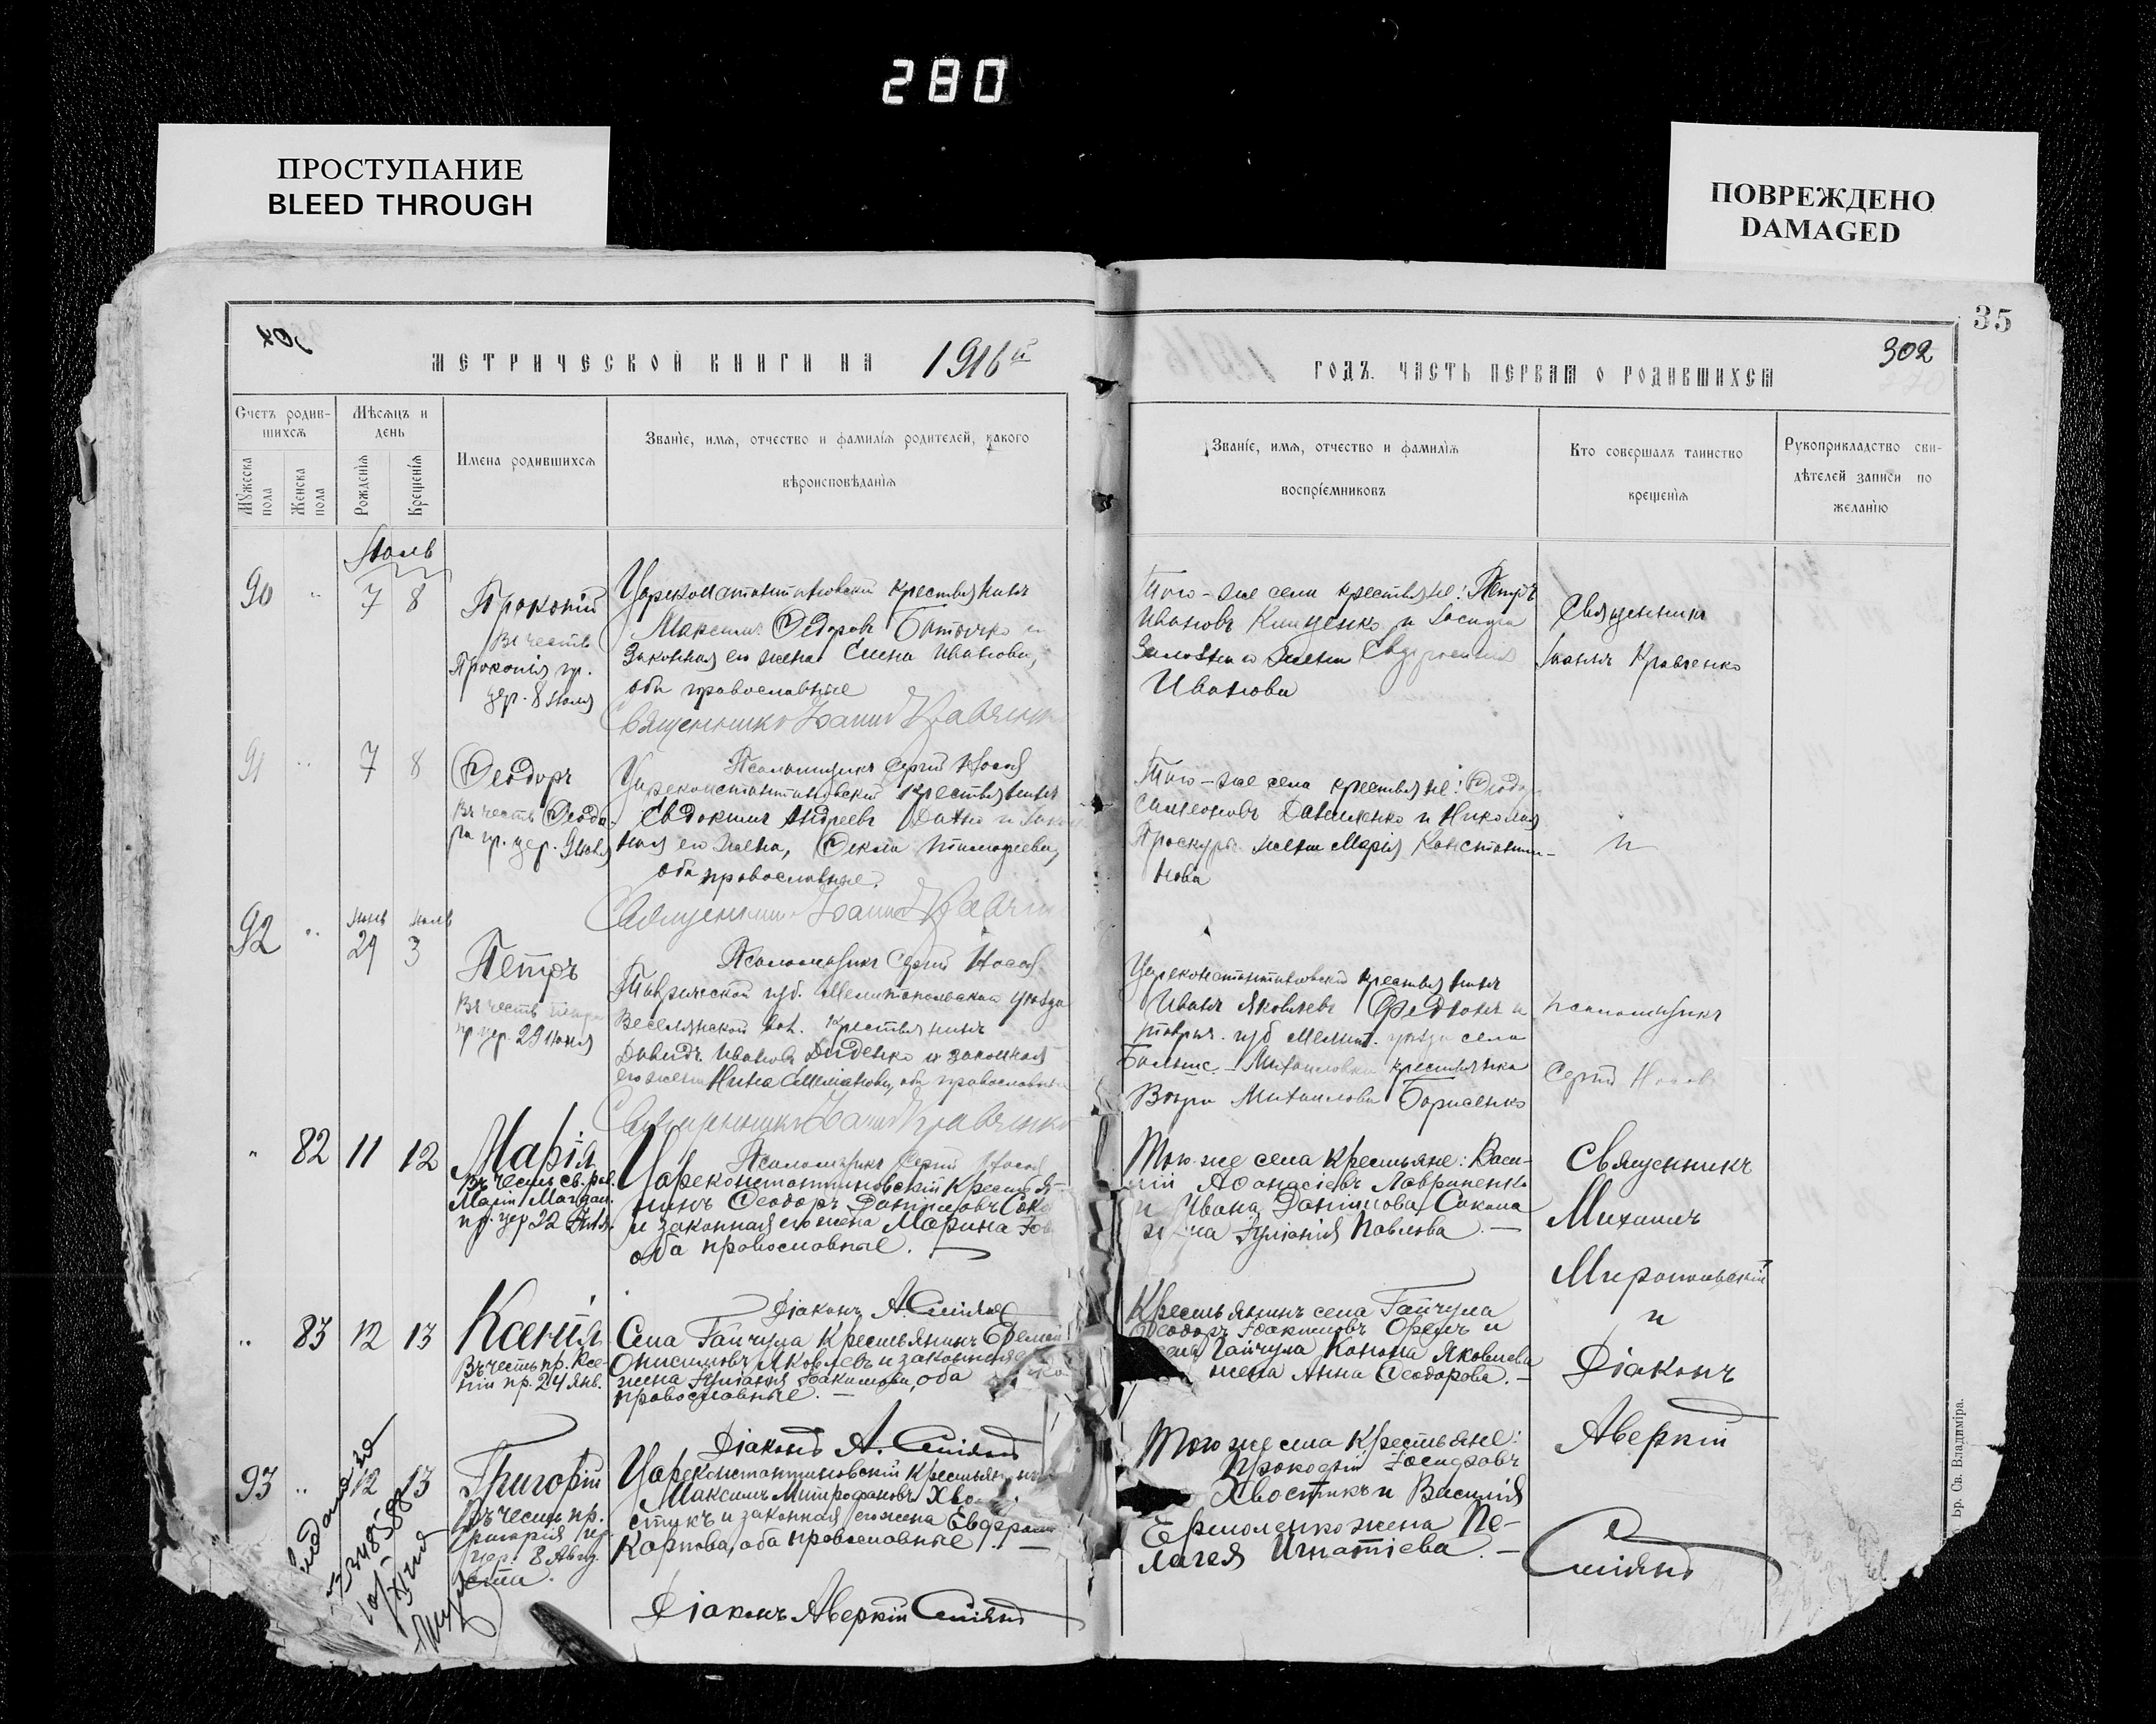 280
ПРОСТУПАНИЕ
BLEED THROUGH
ПОВРЕЖДЕНО
DAMAGED
35
302
МЕТРИЧЕСКОЙ КНИГИ НА 1916й
ГОДЪ. ЧАСТЬ ПЕРВАЯ О РОДИВШИХСЯ
Счетъ родив-
шихся
Мужеска
пола
Женска
пола
Мѣсяцъ и
день
Рожденія
Крещенія
Имена родившихся
Званіе, имя, отчество и фамилія родителей, какого
вѣроисповѣданія
Званіе, имя, отчество и фамилія
воспріемниковъ
Кто совершалъ таинство
крещенія
Рукоприкладство сви-
дѣтелей записи по
желанію
Іюль
90 " 7 8
Прокопій
Въ честь
Прокопія пр.
цер. 8 Іюля
Цареконстантиновскій крестьянинъ
Максимъ Ѳедоровъ и
законная его жена Елена Иванова,
оба православные
Священникъ Іоаннъ Кравченко
Того-же села крестьяне: Петръ
Ивановъ Клищенко и
жена
Иванова
Священникъ
Іоаннъ Кравченко
91 " 7 8
Ѳеодоръ
Въ честь Ѳеодо-
ра пр. цер. 9 Іюля
Псаломщикъ Сергій Носов
Цареконстантиновскій крестьянинъ
Евдокимъ Андреевъ и закон
ная его жена, Ѳекла Тимофеева,
оба православные.
Священникъ Іоаннъ Кравчен
Того-же села крестьяне: Ѳеодоръ
Симеоновъ Даниленко и Николая
Проскуры жена Марія Константи-
нова
и
92 "
Іюнь Іюль
29 3
Петръ
Въ честь Петра
пр. цер. 29 Іюня
Псаломщикъ Сергій Носов
Таврической губ. Мелитопольскаго уѣзда
Веселянской вол. крестьянинъ
Давидъ Ивановъ Диденко и законная
его жена Нина Емеліанова, оба православные
Священникъ Іоаннъ Кравченко
Цареконстантиновскій крестьянинъ
Иванъ Яковлевъ и
таврич. губ Мелит. уѣзда села
Больше-Михайловки крестьянка
Михаилова Борисенко
Псаломщикъ
Сергій Носов
" 82 11 12
Марія
Въ честь св. рав.
Маріи Магдал.
пр. цер 22 Іюля.
Псаломщикъ Сергій Носов
Цареконстантиновскій крестья-
нинъ Ѳеодоръ Даниловъ Соко
и законная его жена Марина
оба православные.
Діаконъ А. Сміянъ
Того-же села крестьяне: Васи-
лій Аѳанасіевъ Лавриненко
и Ивана Данилова Сокола
жена Іуліанія Павлова. —
Священникъ
Михаилъ
Миропольскій
и
Діаконъ
Аверкій
Сміянъ
" 83 12 13
Ксенія
Въ честь пр. Ксе-
ніи пр. 24 янв.
Села Гайчула крестьянинъ
Онисимовъ Яковлевъ и законная
жена Іуліанія Іоакимова, оба
православные. —
Діаконъ А. Сміянъ
Крестьянинъ села Гайчула
Ѳеодоръ Іоакимовъ Орелъ и
села Гайчула Конона Яковлева
жена Анна Ѳеодорова. —
93 " 12 13
Григорій
Въ честь пр.
Григорія
цер. 8 Авгу-
ста.
Цареконстантиновскій крестьянинъ
Максимъ Митрофановъ Хво
стикъ и законная его жена Евфрос
Карпова, оба православные. —
Діаконъ Аверкій Сміянъ
Того же села крестьяне:
Прокофій Іосифовъ
Хвостикъ и Василія
Ермоленко жена Пе-
лагея Игнатіева. —
Бр. Св. Владиміра.